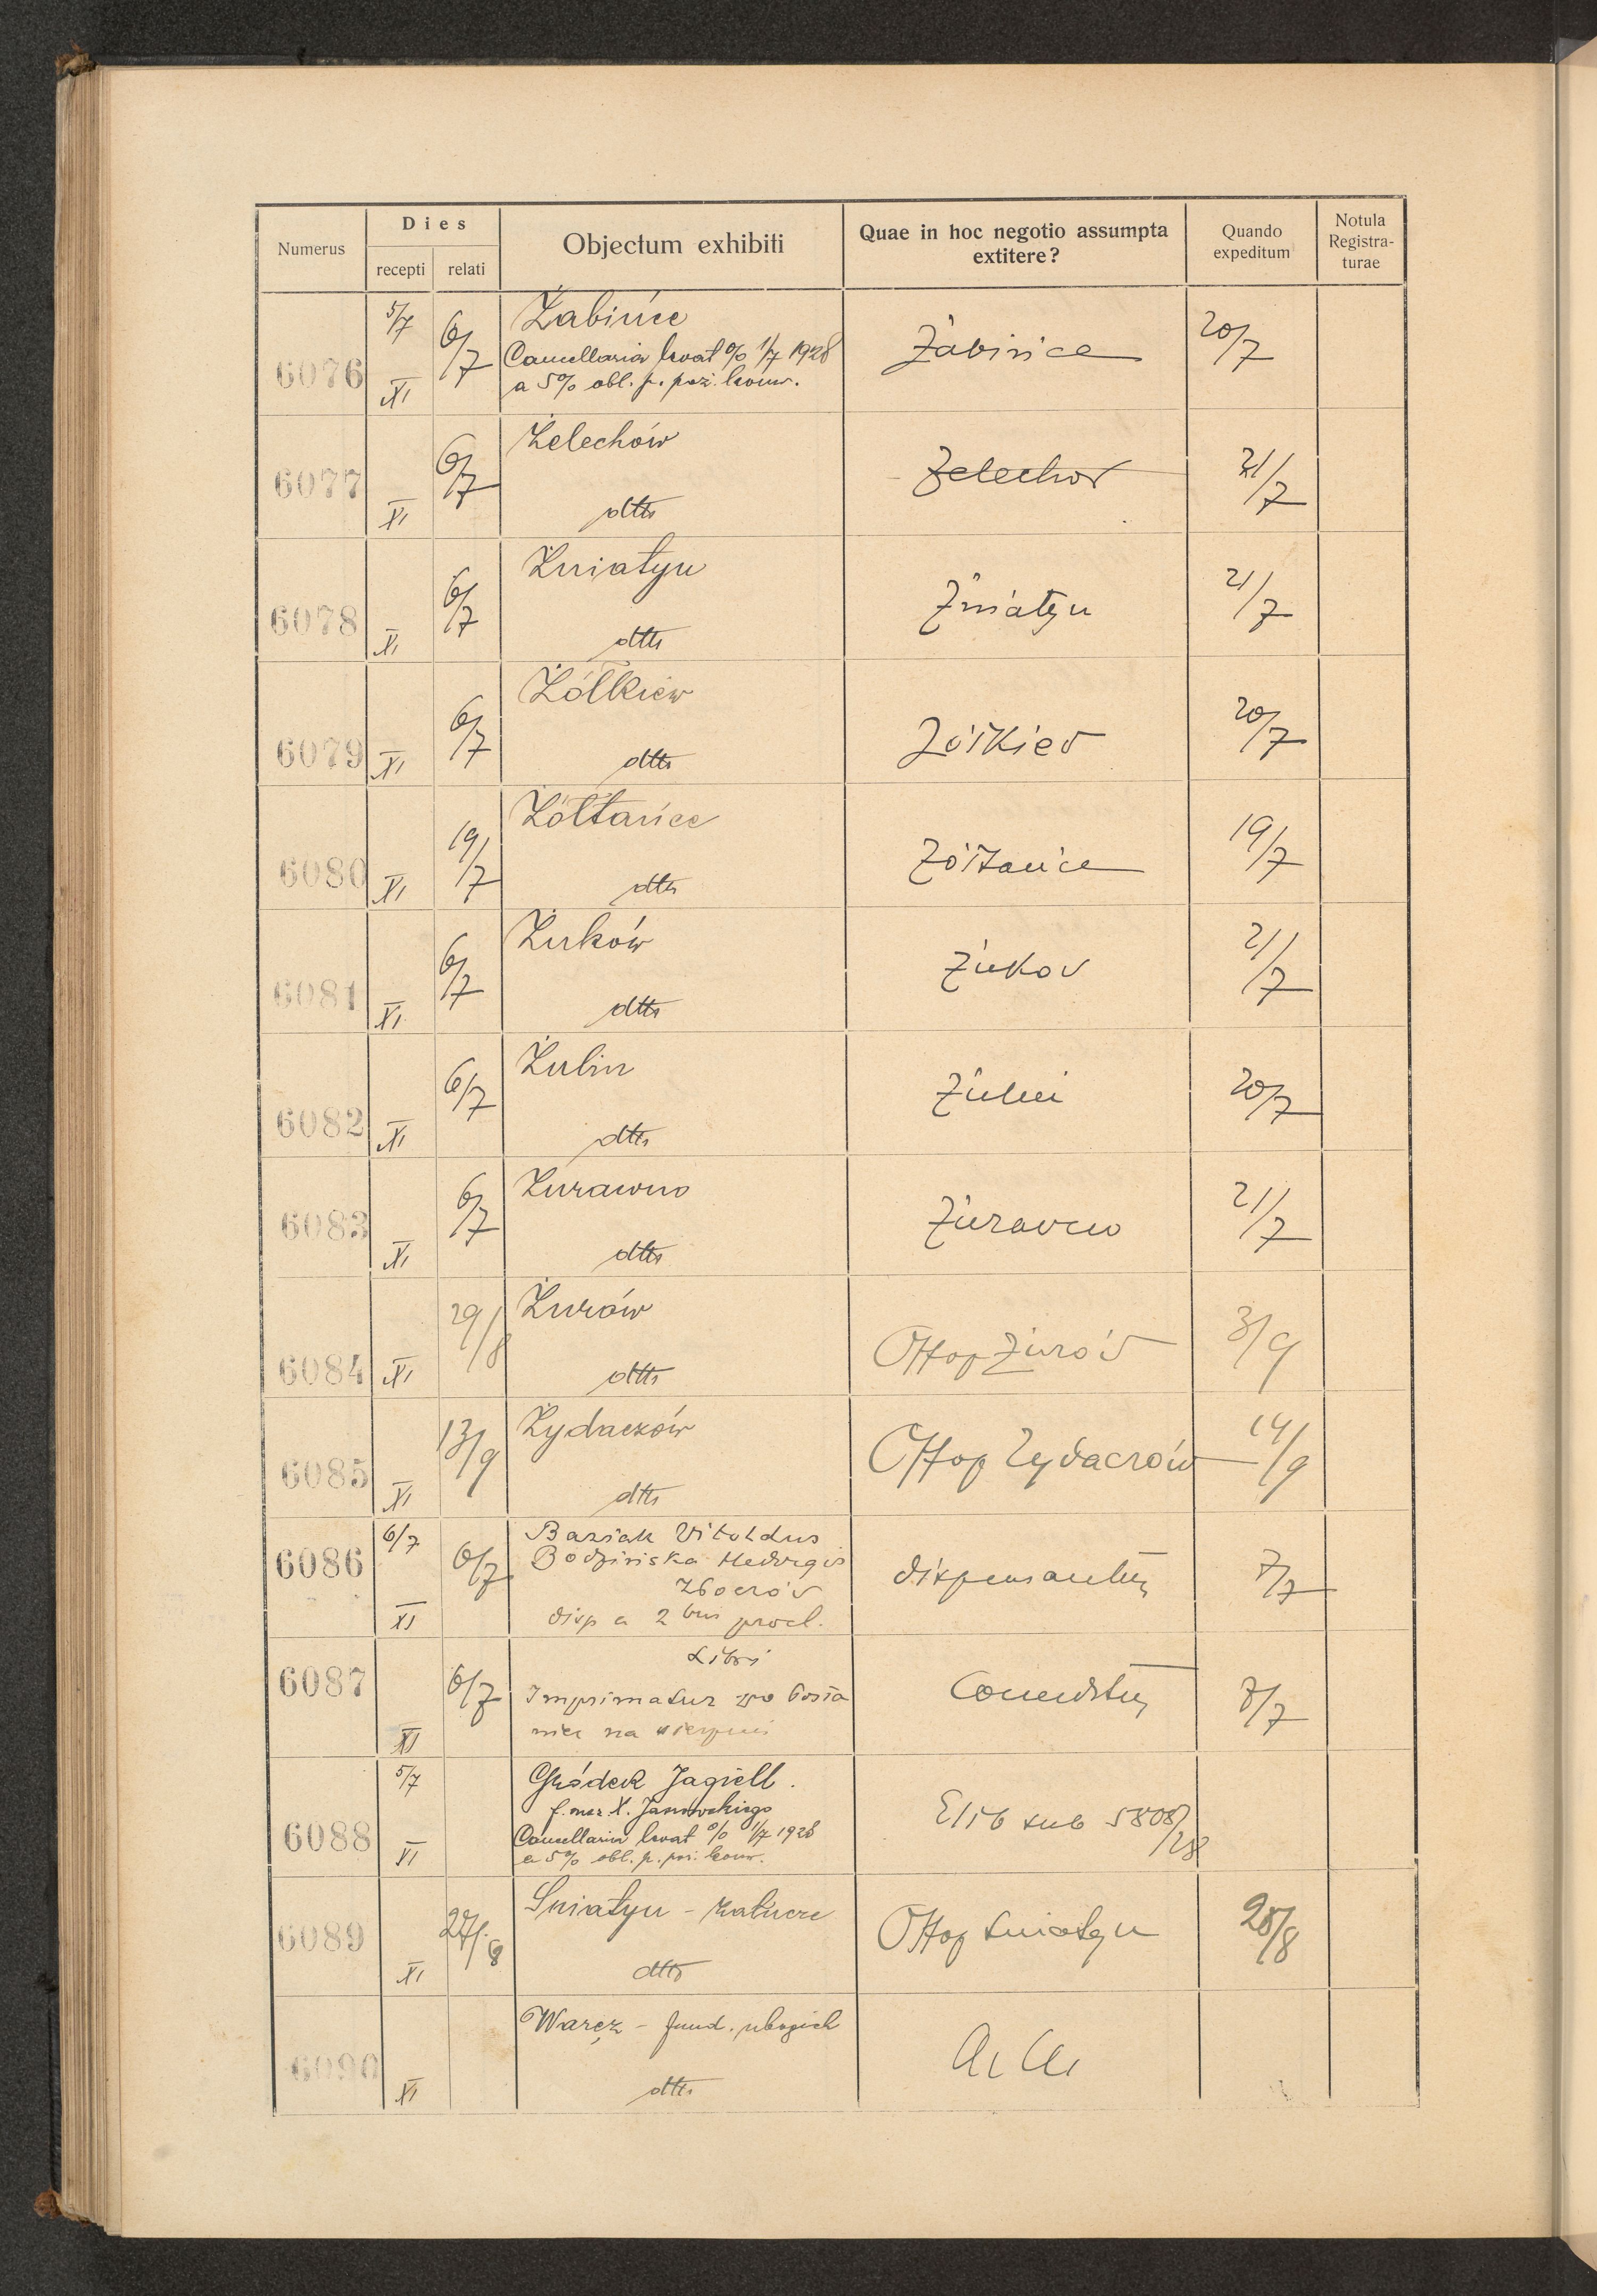 Numerus
Dies
recepti
relati
Objectum exhibiti
Quae in hoc negotio assumpta
extitere?
Quando
expeditum
Notula
Registra-
turae
6076
5/7
XI
6/7
Żabińce
Cancellaria kwat % 1/7 1928
a 5% obl. p. poż. konw.
Żabińce
20/7
6077
XI
6/7
Żelechów
dtto
Żelechov
21/7
6078
XI
6/7
Żniatyn
dtto
Żniatyn
21/7
6079
XI
6/7
Żółkiew
dtto
Żółkiev
20/7
6080
XI
19/7
Żółtańce
dtto
Żółtańce
19/7
6081
XI
6/7
Żuków
dtto
Żukov
21/7
6082
XI
6/7
Żulin
dtto
Żulin
20/7
6083
XI
6/7
Żurawno
dtto
Żuravno
21/7
6084
XI
29/8
Żurów
dtto
Offop Żuróv
3/9
6085
XI
13/9
Żydaczów
dtto
Offop Żydaczów
14/9
6086
6/7
XI
6/7
Baziak Vitoldus
Bodzińska Hedvigis
Zboróv
disp a 2bus procl.
dispensantur
7/7
6087
XI
6/7
Libri
Imprimatur
na sierpień
7/7
6088
5/7
XI
Gródek Jagiell.
f. msz. X. Janowskiego
Cancellaria kwat % 1/7 1928
a 5% obl. p. poż. konw.
sub 5808/28
6089
XI
27/8
Śniatyn - Załucze
dtto
Offop Śniatyn
28/8
6090
XI
Waręż - fund. ubogich
dtto